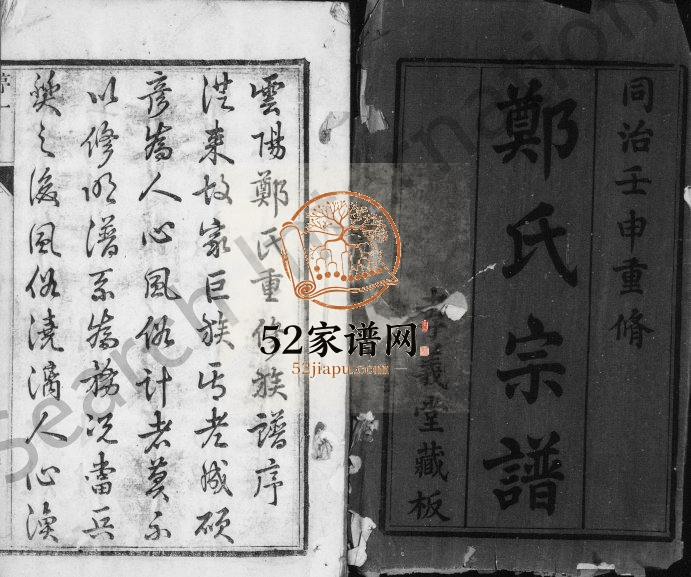 同治壬申重脩
鄭氏宗譜
孝義堂藏板
雲陽鄭氏重修族譜序
從來故家巨族與老成碩
彥為人心風俗計者莫不
以修明譜系為務況當兵
燹之後風俗澆漓人心渙
52家谱网
52jiapu.com
Search International